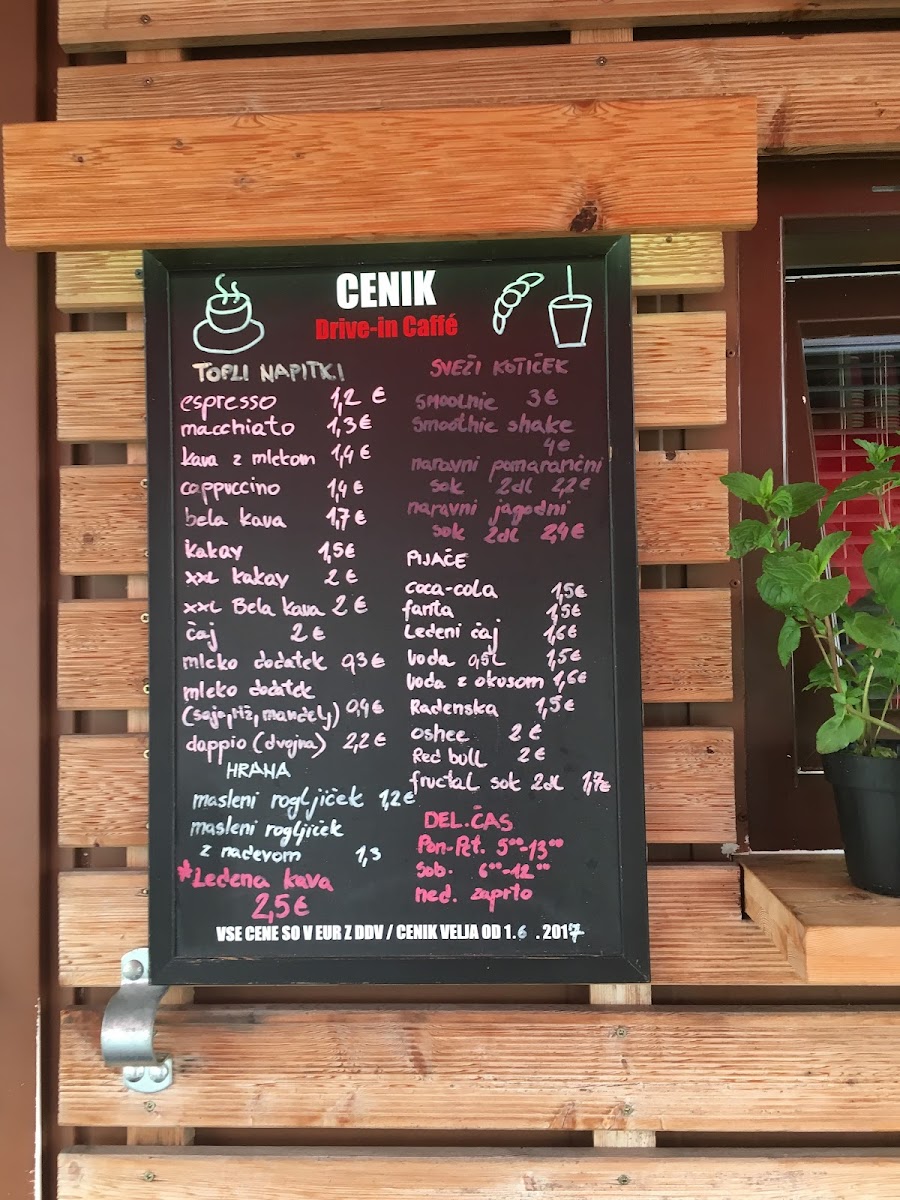 CENIK
Drive-in Caffé
TOPLI NAPITKI
espresso 1,2 €
macchiato 1,3€
kava z mlekom 1,4 €
cappuccino 1,4 €
bela kava 1,7 €
kakav 1,5€
xxl kakav 2 €
xxl Bela kava 2 €
čaj 2 €
mleko dodatek 0,3€
mleko dodatek
(soja, riž, mandelj) 0,4€
dappio (dvojna) 2,2 €
HRANA
masleni rogljiček 1,2€
masleni rogljiček
z nadevom 1,3
*Ledena kava
2,5€
SVEŽI KOTIČEK
Smoothie 3€
Smoothie shake
4€
naravni pomarančni
sok 2dl 2,2€
naravni jagodni
sok 2dl 2,4€
PIJAČE
coca-cola 1,5€
fanta 1,5€
Ledeni čaj 1,6€
Voda 0,5L 1,5€
Voda z okusom 1,6€
Radenska 1,5€
oshee 2€
Red bull 2€
fructal sok 2dl 1,7€
DEL.ČAS
Pon-Pet. 5⁰⁰-13⁰⁰
Sob. 6⁰⁰-12⁰⁰
ned. zaprto
VSE CENE SO V EUR Z DDV / CENIK VELJA OD 1.6 . 2017